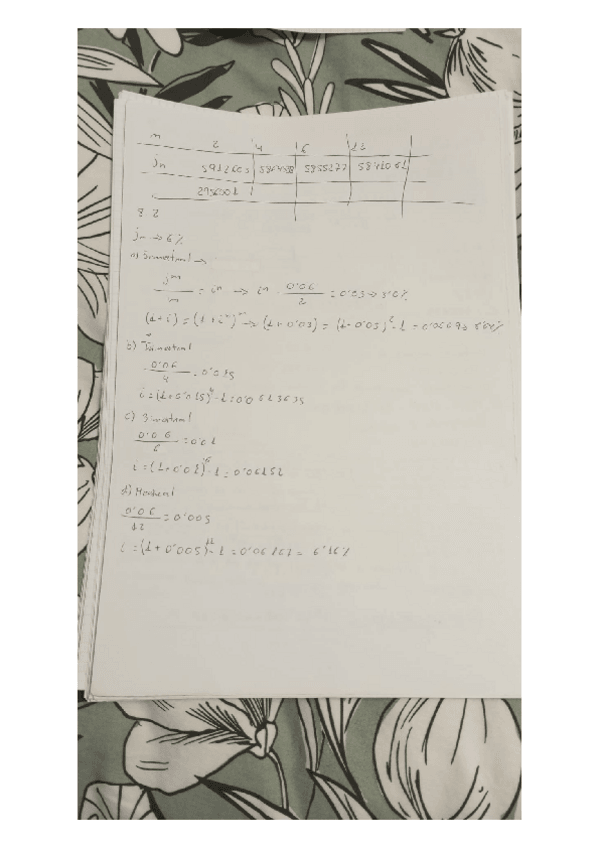 n 2 4 6 12
jn 5912603 586988 5855277 5847061
295601
8 2
jn → 6%
a) Semestral →
jm/m = im → im = 0'06/2 = 0'03 → 3'0%
b) Trimestral
0'06/4 = 0'015
i = (1+0'015)^4 - 1 = 0'0613635
c) Bimestral
0'06/6 = 0'01
i = (1+0'01)^6 - 1 = 0'06152
d) Mensual
0'06/12 = 0'005
i = (1+0'005)^12 - 1 = 0'06167 = 6'16%